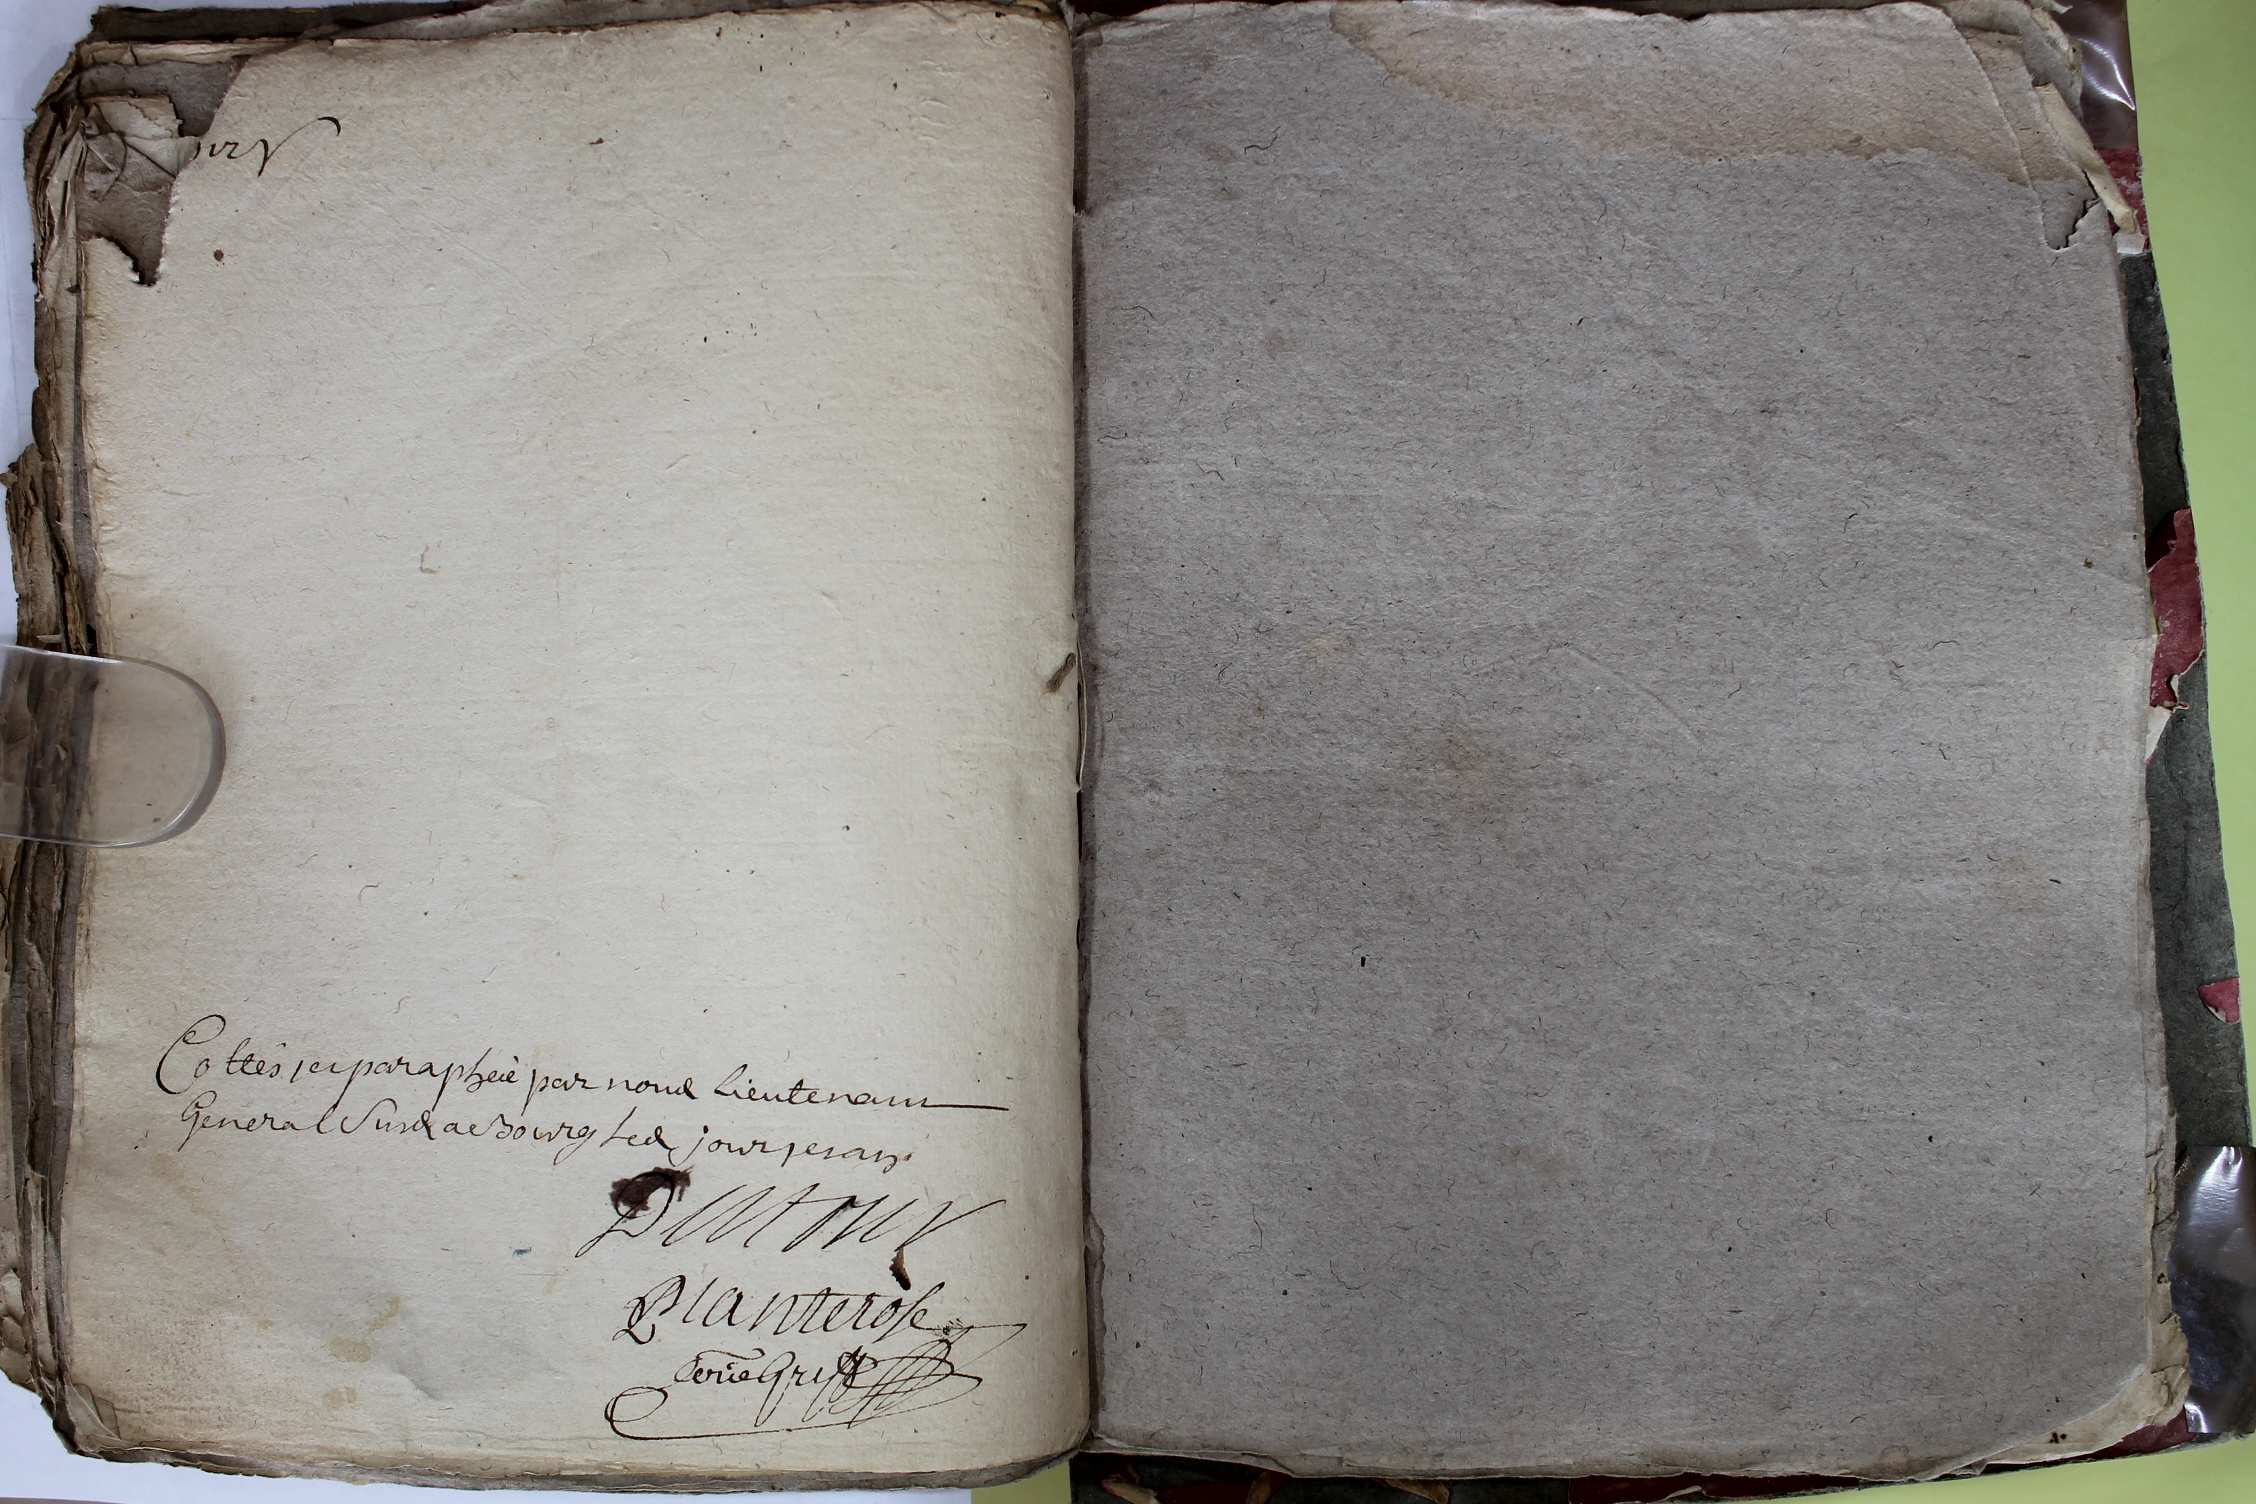 Cottés et paraphéé par nous Lieutenant
General Susd a Bourg led jour et an
Dutour
Planterose
Greff